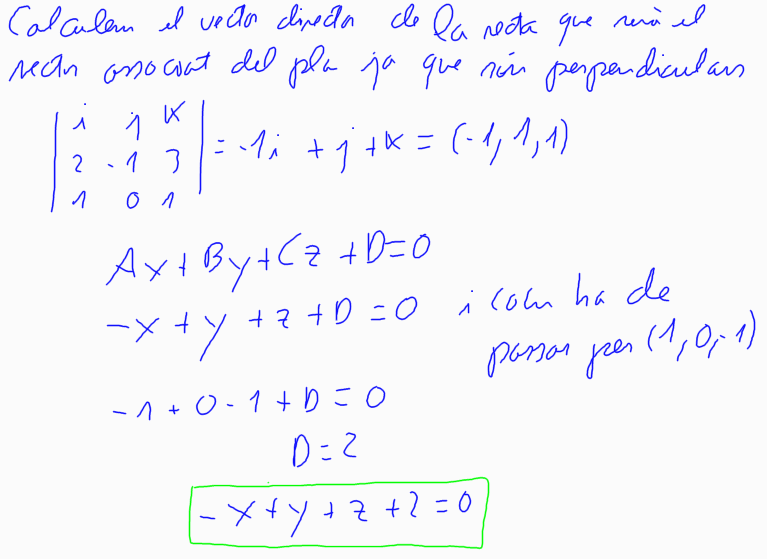 Calculem el vector director de la recta que serà el
vector associat del pla ja que són perpendiculars
| i j k |
| 2 -1 3 | = -1i + j + k = (-1, 1, 1)
| 1 0 1 |
Ax + By + Cz + D = 0
-x + y + z + D = 0 i com ha de
passar per (1, 0, -1)
-1 + 0 - 1 + D = 0
D = 2
-x + y + z + 2 = 0